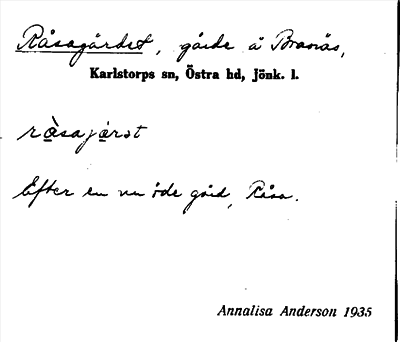 Råsagärdet, gärde å Branäs,
Karlstorps sn, Östra hd, Jönk. l.
råsajärət
Efter en nu öde gård, Råsa.
Annalisa Anderson 1935